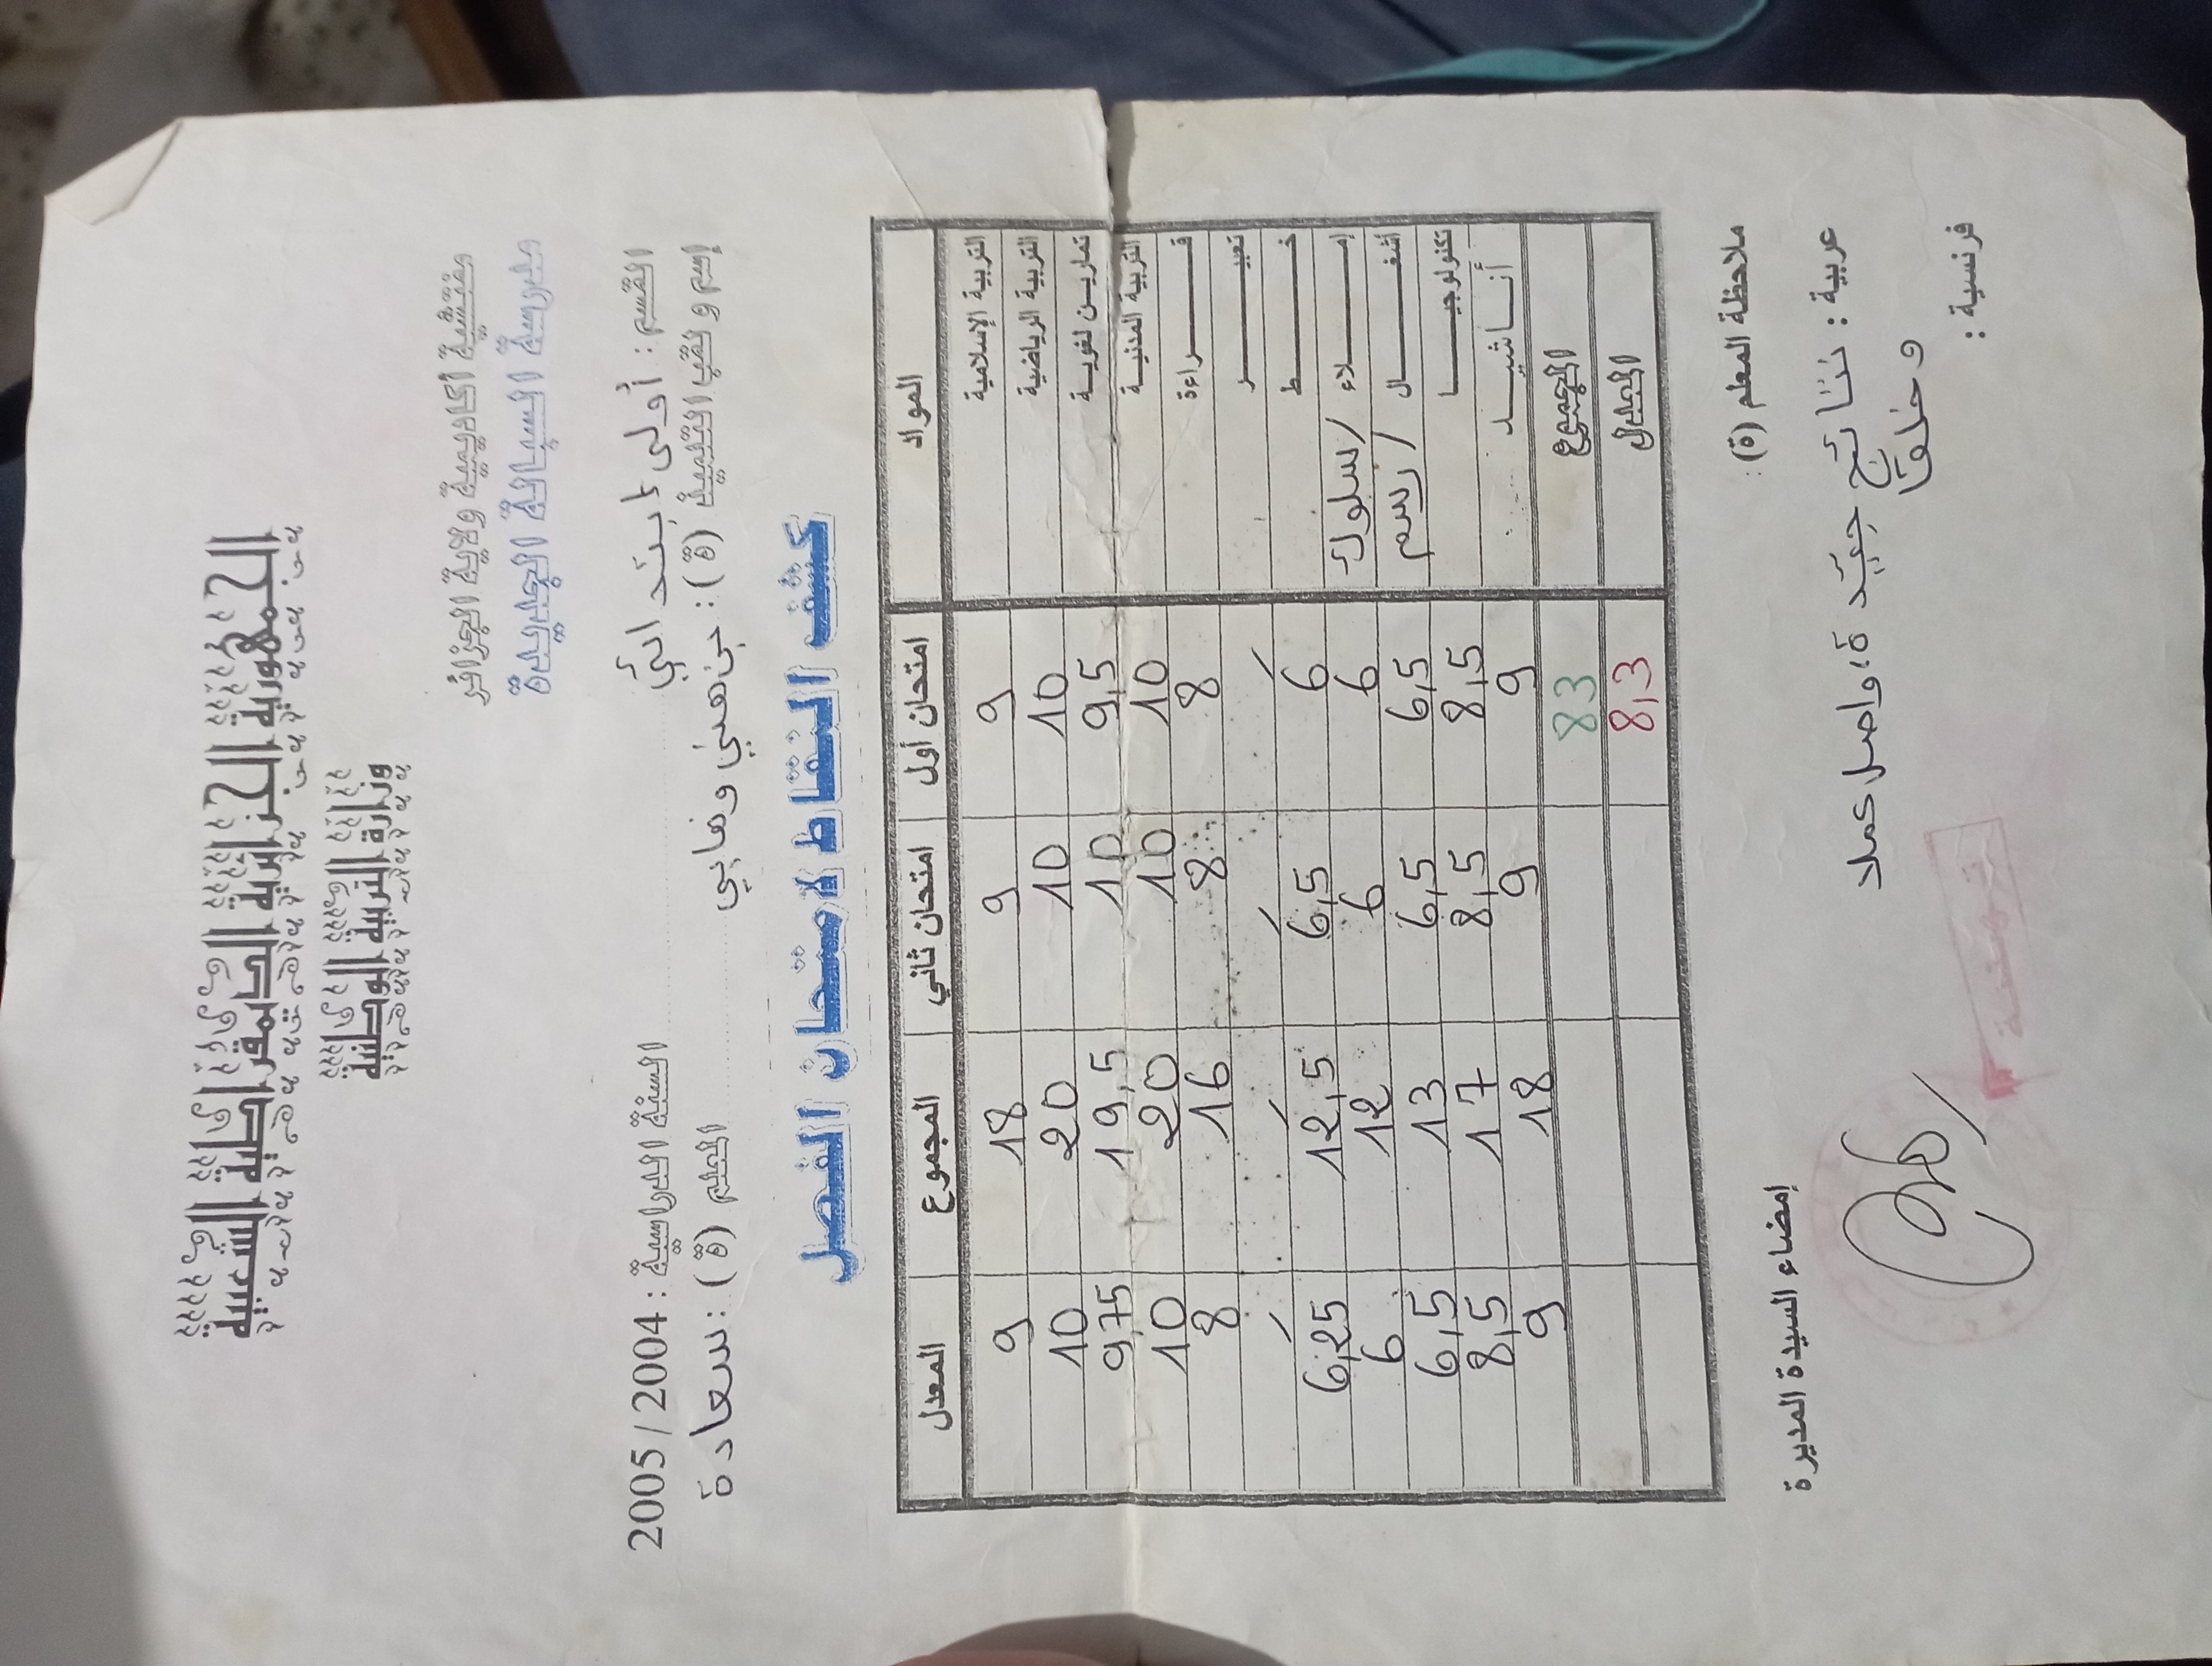 الجمهورية الجزائرية الديمقراطية الشعبية
وزارة التربية الوطنية
مفتشية أكاديمية ولاية الجزائر
مدرسة السبالة الجديدة
القسم : أولى ابتدائي السنة الدراسية : 2004 / 2005
إسم و لقب التلميذ (ة) : بن هني وهابي المعلم (ة) : سعادة
كشف النقاط لامتحان الفصل
المواد امتحان أول امتحان ثاني المجموع المعدل
التربية الإسلامية 9 9 18 9
التربية الرياضية 10 10 20 10
تمارين لغوية 9,5 10 19,5 9,75
التربية المدنية 10 10 20 10
قراءة 8 8 16 8
تعبير / / / /
خط 6 6,5 12,5 6,25
إملاء / سلوك 6 6 12 6
أشغال / رسم 6,5 6,5 13 6,5
تكنولوجيا 8,5 8,5 17 8,5
أناشيد 9 9 18 9
المجموع 83
المعدل 8,3
ملاحظة المعلم (ة) :
إمضاء السيدة المديرة
عربية : نتائج جيّدة، واصل عملا
وخلقا
فرنسية :
تهنئة